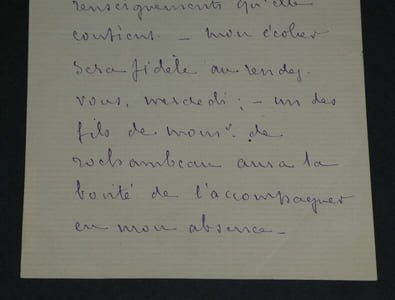 renseignements qu'elle
contient. – mon écolier
sera fidèle au rendez-
vous, mercredi ; – un des
fils de monsr. de
rochambeau aura la
bonté de l'accompagner
en mon absence –